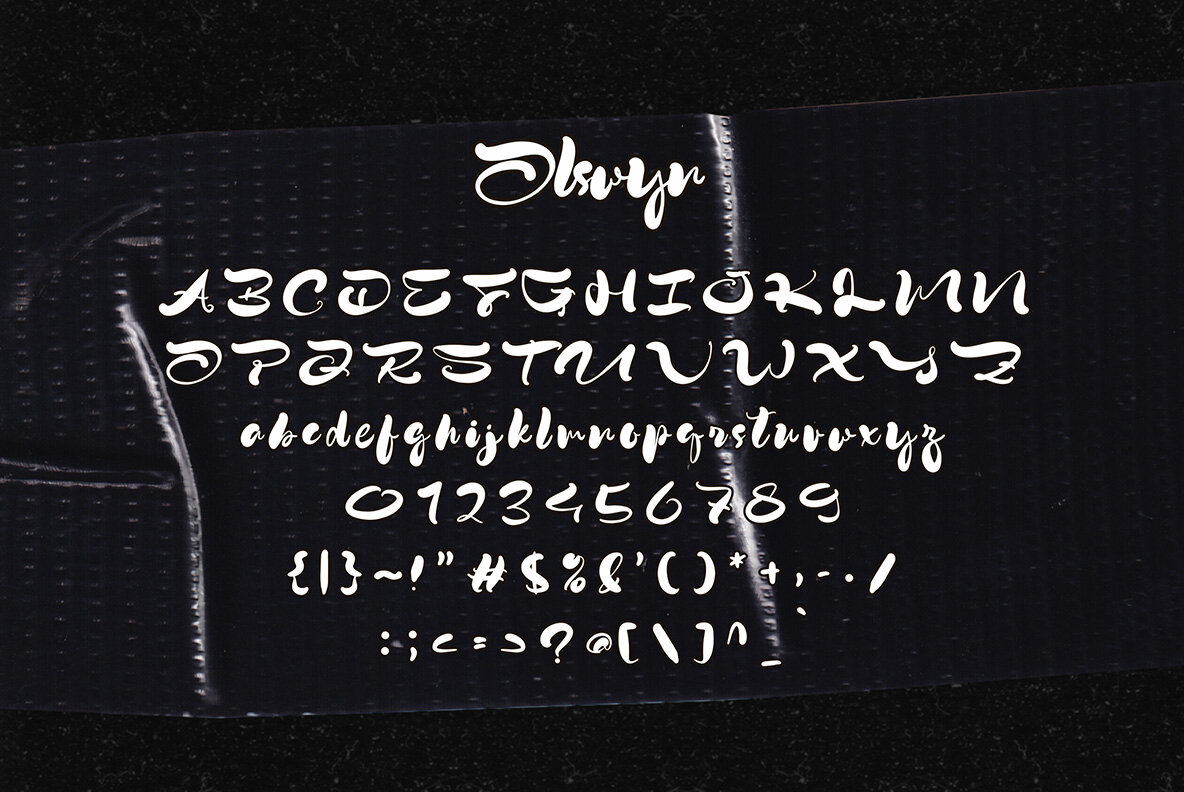 Olsvyr
ABCDEFGHIJKLMN
OPQRSTUVWXYZ
abcdefghijklmnopqrstuvwxyz
0123456789
{|}~!"#$%&'()*+,-./
:;<=>?@[\]^_`